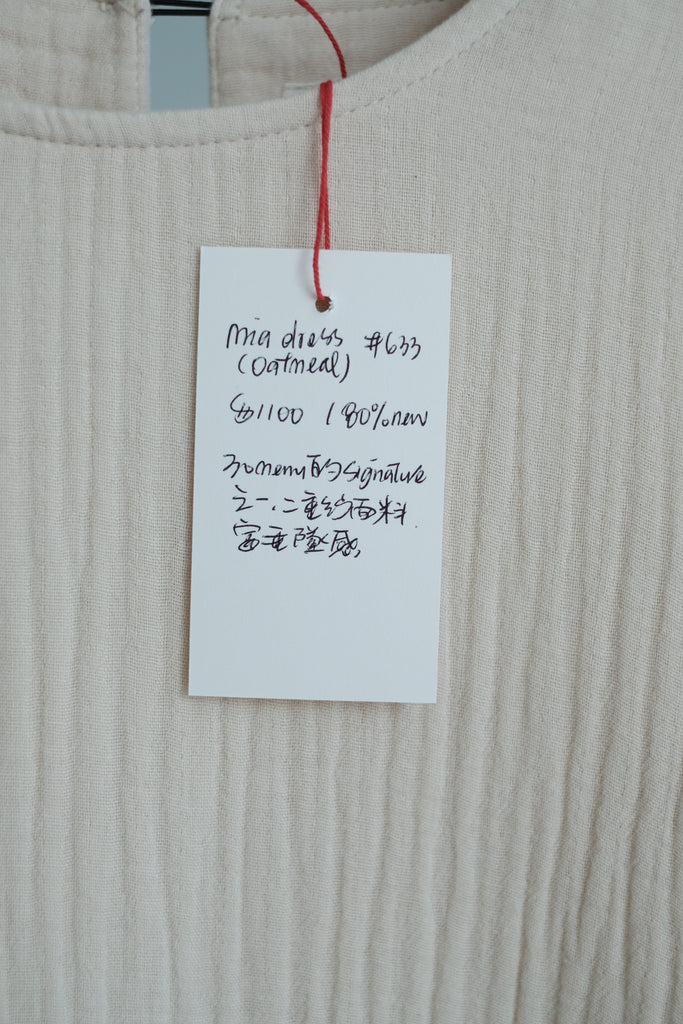 mia dress #633
(oatmeal)
$1100 / 80%new
30menu的signature
之一.二重纱面料
富垂墜感,